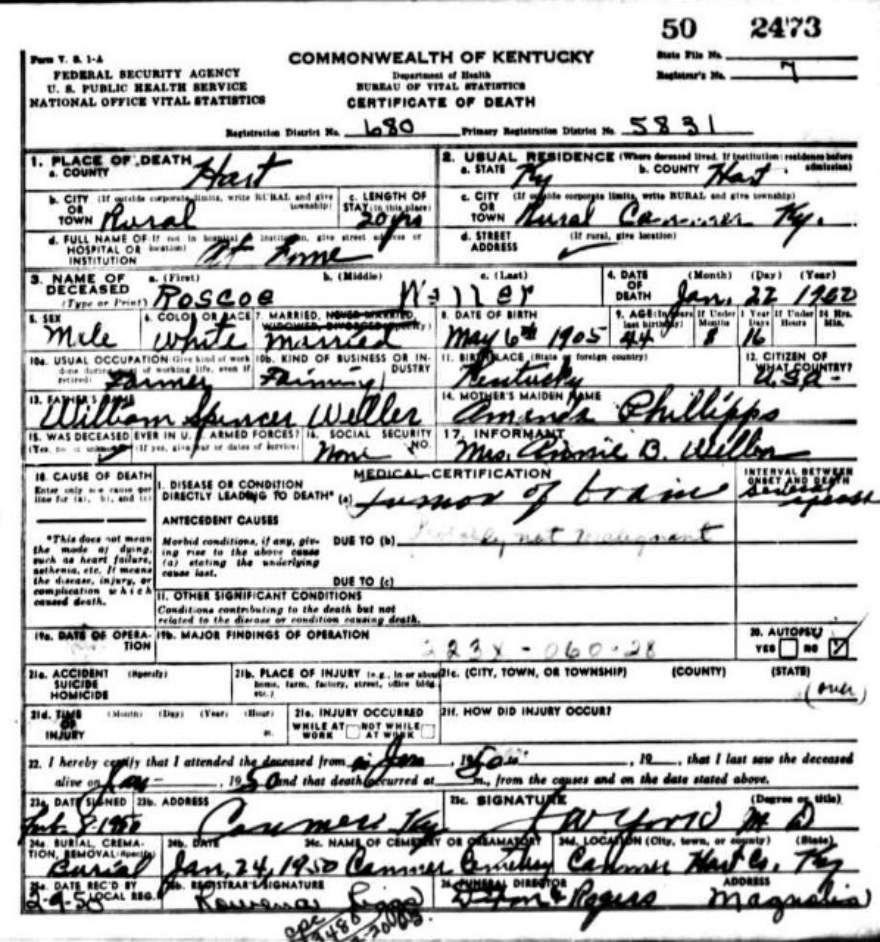 50 2473
Form V. S. 1-A
COMMONWEALTH OF KENTUCKY
State File No.
FEDERAL SECURITY AGENCY
Department of Health
Registrar's No. 7
U. S. PUBLIC HEALTH SERVICE
BUREAU OF VITAL STATISTICS
NATIONAL OFFICE VITAL STATISTICS
CERTIFICATE OF DEATH
Registration District No. 680 Primary Registration District No. 5831
1. PLACE OF DEATH
a. COUNTY Hart
2. USUAL RESIDENCE (Where deceased lived. If institution: residence before admission)
a. STATE Ky b. COUNTY Hart
b. CITY (If outside corporate limits, write RURAL and give township)
OR
TOWN Rural
c. LENGTH OF
STAY (in this place)
20 yrs
c. CITY (If outside corporate limits, write RURAL and give township)
OR
TOWN Rural Canmer Ky.
d. FULL NAME OF (If not in hospital or institution, give street address or location)
HOSPITAL OR
INSTITUTION At Home
d. STREET (If rural, give location)
ADDRESS
3. NAME OF DECEASED
(Type or Print)
a. (First) b. (Middle) c. (Last)
Roscoe Weller
4. DATE OF DEATH (Month) (Day) (Year)
Jan. 22 1950
5. SEX
Male
6. COLOR OR RACE
White
7. MARRIED, NEVER MARRIED, WIDOWED, DIVORCED (Specify)
Married
8. DATE OF BIRTH
May 6th 1905
9. AGE (In years last birthday) If Under 1 Year Months Days If Under 24 Hrs. Hours Min.
44 8 16
10a. USUAL OCCUPATION (Give kind of work done during most of working life, even if retired)
Farmer
10b. KIND OF BUSINESS OR INDUSTRY
Farming
11. BIRTHPLACE (State or foreign country)
Kentucky
12. CITIZEN OF WHAT COUNTRY?
U.S.A.
13. FATHER'S NAME
William Spencer Weller
14. MOTHER'S MAIDEN NAME
Amanda Phillipps
15. WAS DECEASED EVER IN U. S. ARMED FORCES?
(Yes, no, or unknown) (If yes, give war or dates of service)
16. SOCIAL SECURITY NO.
None
17. INFORMANT
Mrs. Annie B. Weller
18. CAUSE OF DEATH
Enter only one cause per line for (a), (b), and (c)
MEDICAL CERTIFICATION
INTERVAL BETWEEN ONSET AND DEATH
I. DISEASE OR CONDITION
DIRECTLY LEADING TO DEATH* (a) Tumor of brain
several years
*This does not mean the mode of dying, such as heart failure, asthenia, etc. It means the disease, injury, or complication which caused death.
ANTECEDENT CAUSES
Morbid conditions, if any, giving rise to the above cause (a) stating the underlying cause last.
DUE TO (b) Probably not malignant
DUE TO (c)
II. OTHER SIGNIFICANT CONDITIONS
Conditions contributing to the death but not related to the disease or condition causing death.
19a. DATE OF OPERATION
19b. MAJOR FINDINGS OF OPERATION
223X-060-28
20. AUTOPSY?
YES NO
21a. ACCIDENT (Specify)
SUICIDE
HOMICIDE
21b. PLACE OF INJURY (e.g., in or about home, farm, factory, street, office bldg., etc.)
21c. (CITY, TOWN, OR TOWNSHIP) (COUNTY) (STATE)
(over)
21d. TIME OF INJURY (Month) (Day) (Year) (Hour) m.
21e. INJURY OCCURRED
WHILE AT WORK NOT WHILE AT WORK
21f. HOW DID INJURY OCCUR?
22. I hereby certify that I attended the deceased from in Jan, 1950, 19__, that I last saw the deceased
alive on Jan, 1950 and that death occurred at m., from the causes and on the date stated above.
23a. DATE SIGNED
Feb. 8-1950
23b. ADDRESS
Canmer Ky
23c. SIGNATURE (Degree or title)
M D
24a. BURIAL, CREMATION, REMOVAL (Specify)
Burial
24b. DATE
Jan, 24, 1950
24c. NAME OF CEMETERY OR CREMATORY
Canmer Cemetery
24d. LOCATION (City, town, or county) (State)
Canmer Hart Co. Ky
25a. DATE REC'D BY LOCAL REG.
2-9-50
25b. REGISTRAR'S SIGNATURE
Rowena
26. FUNERAL DIRECTOR ADDRESS
& Rogers Magnolia